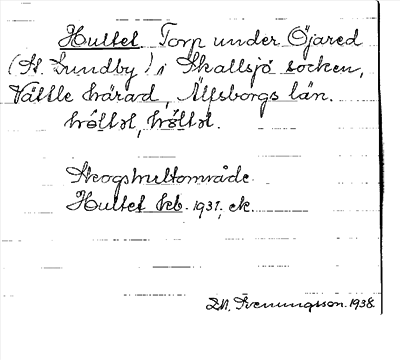 Hultet Torp under Öjared
(St. Lundby) i Skallsjö socken,
Vättle härad, Älfsborgs län.
Skogshultområde
Hultet keb. 1931, ek.
Svenungsson. 1938